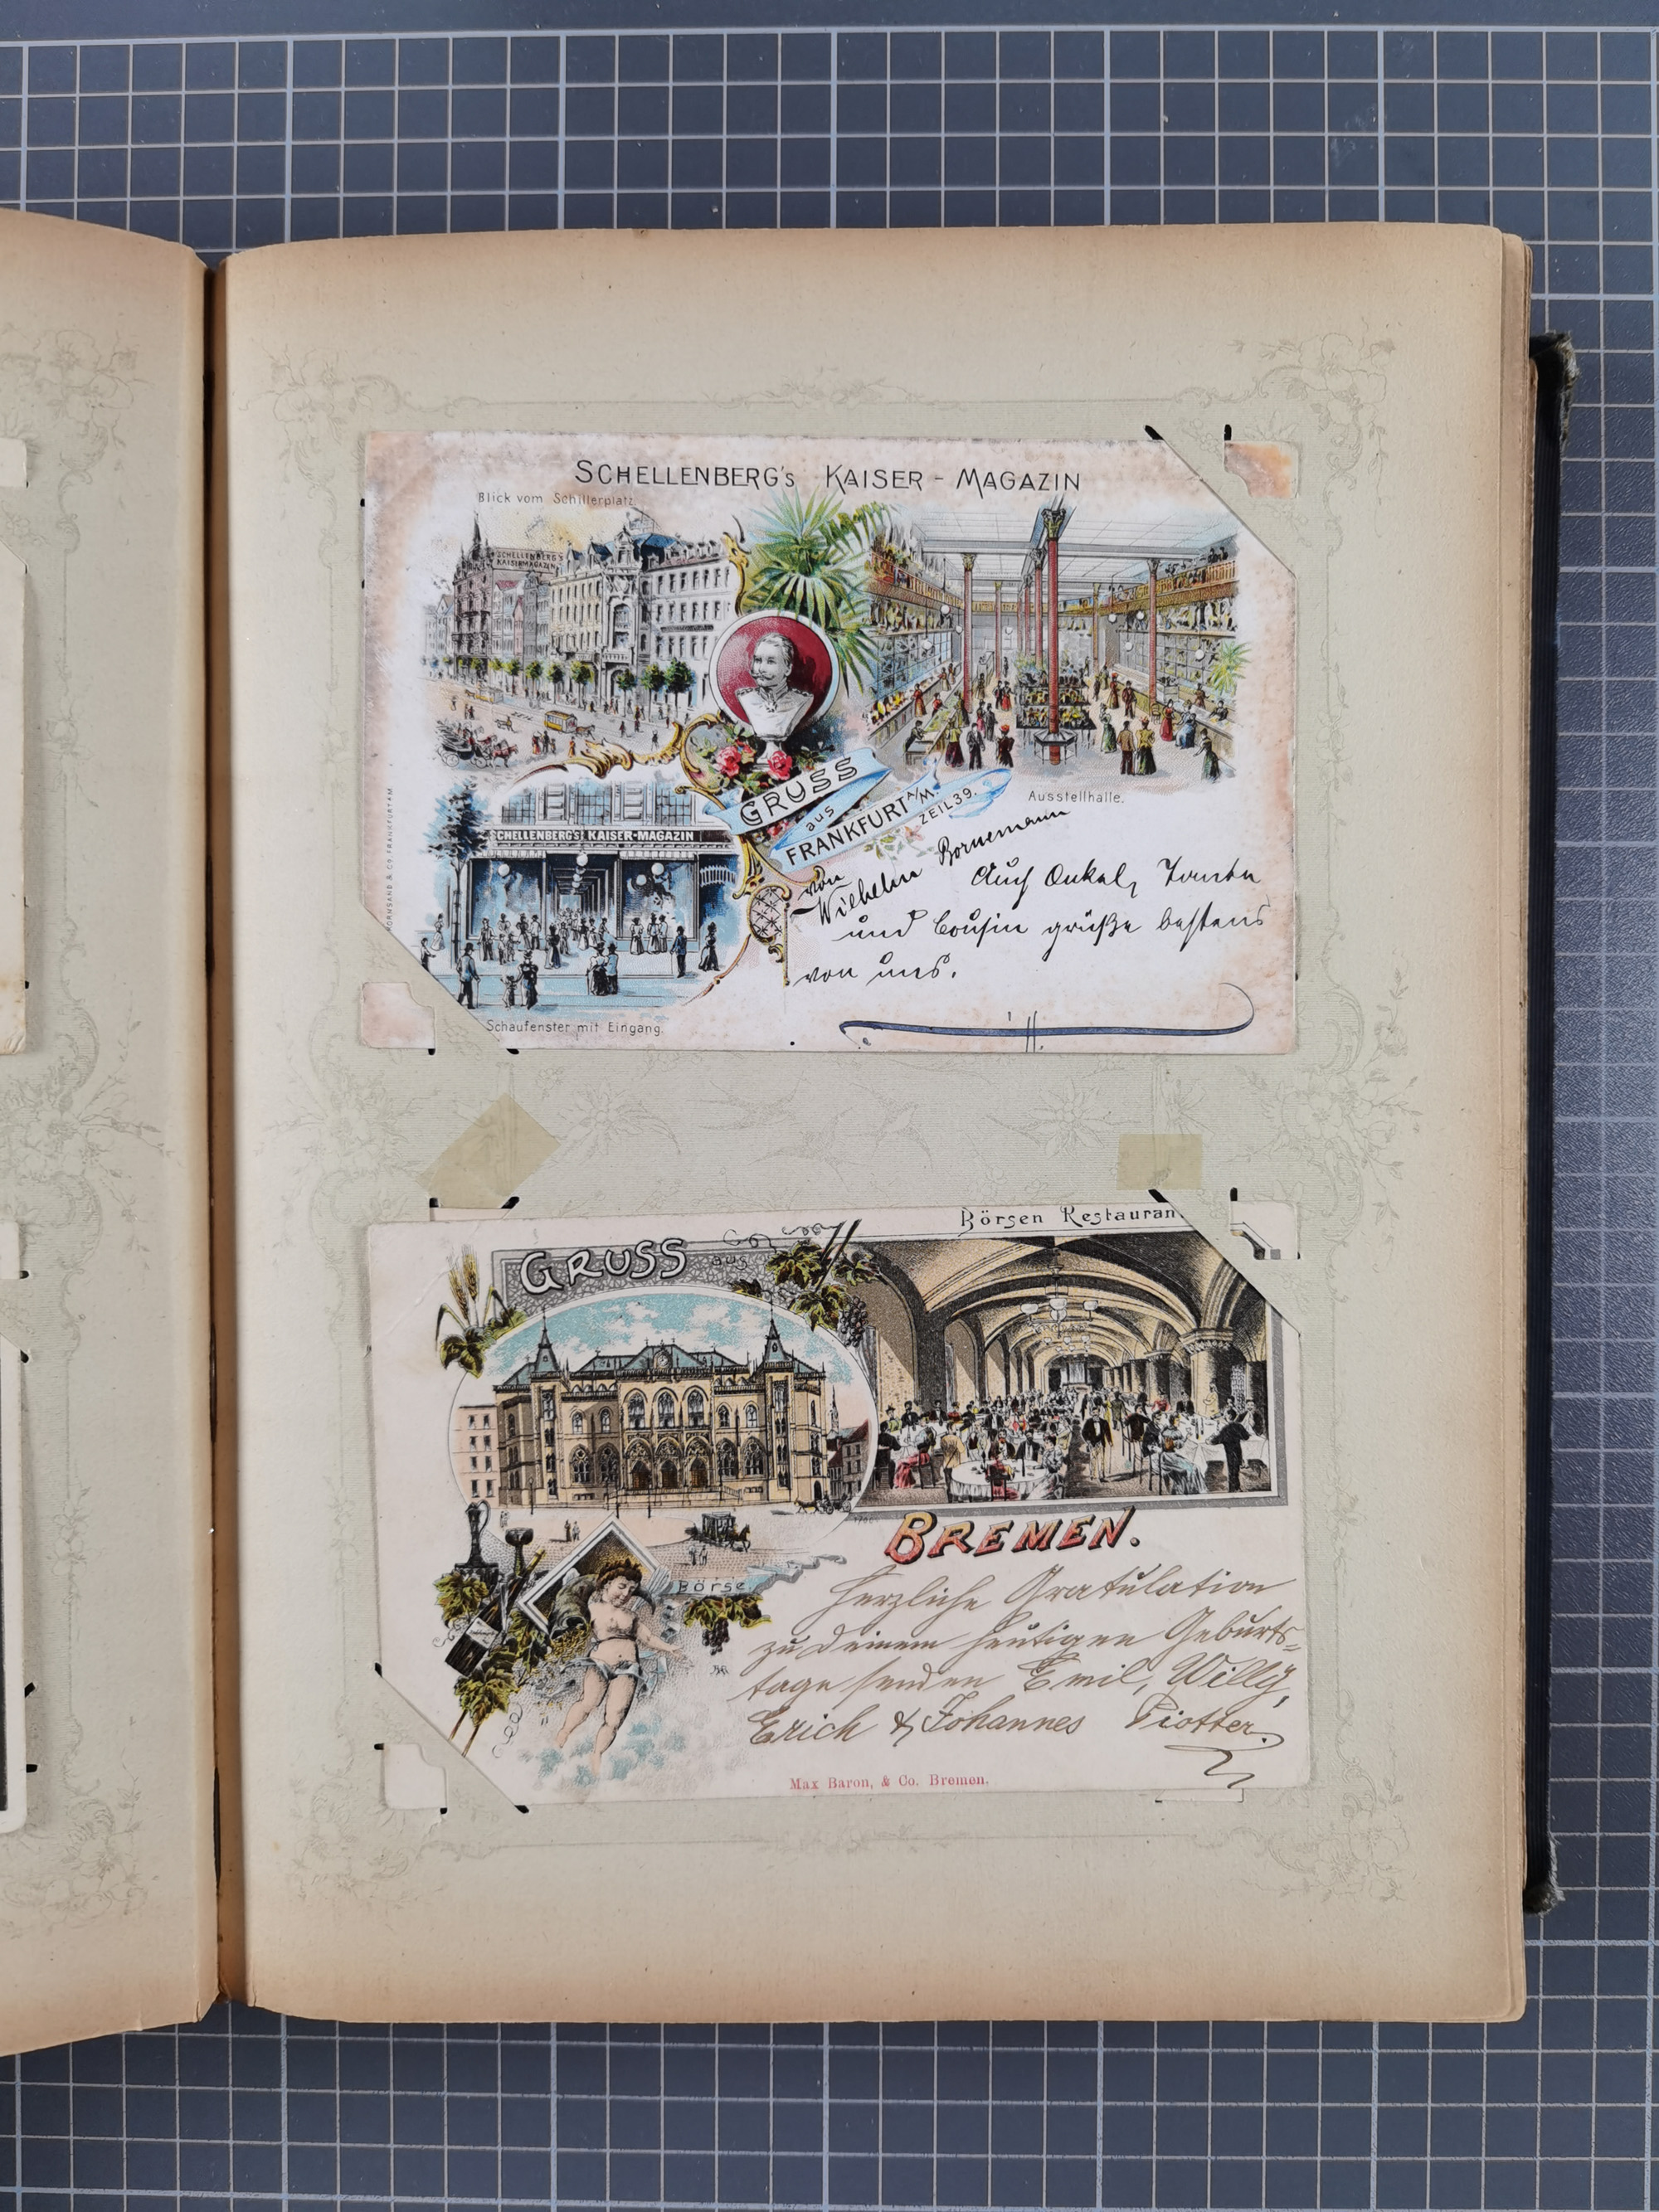 SCHELLENBERG's KAISER-MAGAZIN
Blick vom Schillerplatz.
SCHELLENBERG'S
KAISERMAGAZIN
GRUSS
aus
FRANKFURT A/M.
ZEIL 39.
Ausstellhalle.
SCHELLENBERG'S KAISER-MAGAZIN
Schaufenster mit Eingang.
von
Wilhelm Bornemann
Auch Onkel, Tante
und Cousin grüße bestens
von uns.
Börsen Restauran
GRUSS aus
BREMEN.
Börse.
Herzliche Gratulation
zu deinem heutigen Geburts=
tage senden Emil, Willy,
Erich & Johannes Piotter.
Max Baron, & Co. Bremen.